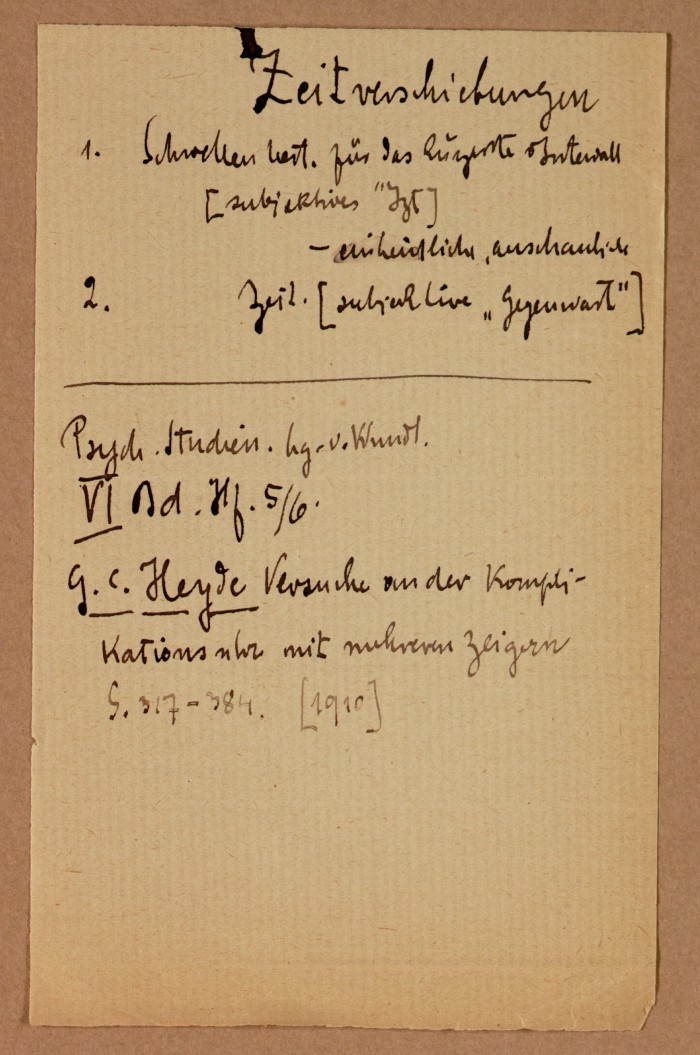 Zeitverschiebungen
1. Schwellenwert. für das kürzeste Intervall
[subjektives "Jzt]
– einheitliche, anschauliche
2. Zeit. [subjektive „Gegenwart"]
Psych. Studien. hg. v. Wundt.
VI Bd. Hf. 5/6.
G. C. Heyde Versuche an der Kompli-
kationsuhr mit mehreren Zeigern
S. 317–384. [1910]